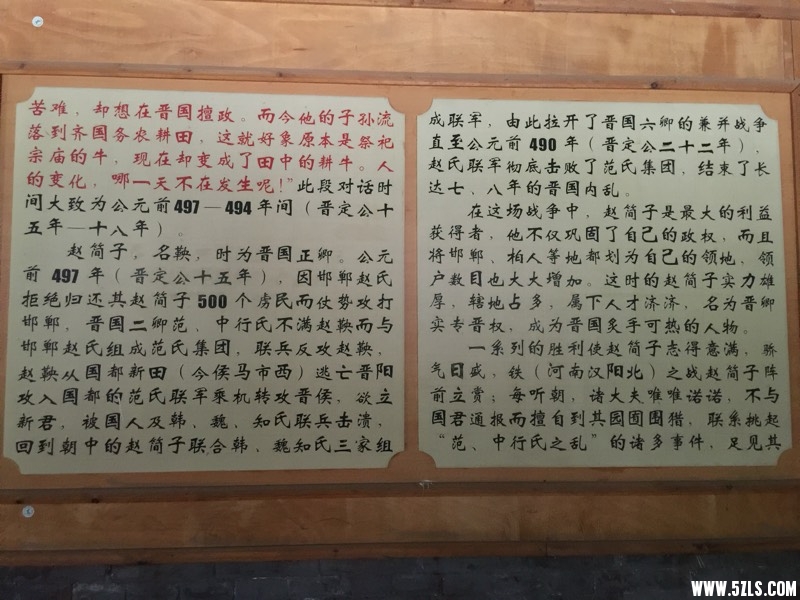 苦难，却想在晋国擅政。而今他的子孙流
落到齐国务农耕田，这就好象原本是祭祀
宗庙的牛，现在却变成了田中的耕牛。人
的变化，哪一天不在发生呢！”此段对话时
间大致为公元前497—494年间（晋定公十
五年—十八年）。
赵简子，名鞅，时为晋国正卿。公元
前497年（晋定公十五年），因邯郸赵氏
拒绝归还其赵简子500个虏民而仗势攻打
邯郸，晋国二卿范、中行氏不满赵鞅而与
邯郸赵氏组成范氏集团，联兵反攻赵鞅，
赵鞅从国都新田（今侯马市西）逃亡晋阳
攻入国都的范氏联军乘机转攻晋侯，欲立
新君，被国人及韩、魏、知氏联兵击溃，
回到朝中的赵简子联合韩、魏知氏三家组
成联军，由此拉开了晋国六卿的兼并战争
直至公元前490年（晋定公二十二年），
赵氏联军彻底击败了范氏集团，结束了长
达七、八年的晋国内乱。
在这场战争中，赵简子是最大的利益
获得者，他不仅巩固了自己的政权，而且
将邯郸、柏人等地都划为自己的领地、领
户数目也大大增加。这时的赵简子实力雄
厚、辖地占多，属下人才济济，名为晋卿
实专晋权，成为晋国炙手可热的人物。
一系列的胜利使赵简子志得意满，骄
气日盛，铁（河南汉阳北）之战赵简子阵
前立赏；每听朝，诸大夫唯唯诺诺，不与
国君通报而擅自到其园囿围猎，联系挑起
“范、中行氏之乱”的诸多事件，足见其
WWW.5ZLS.COM